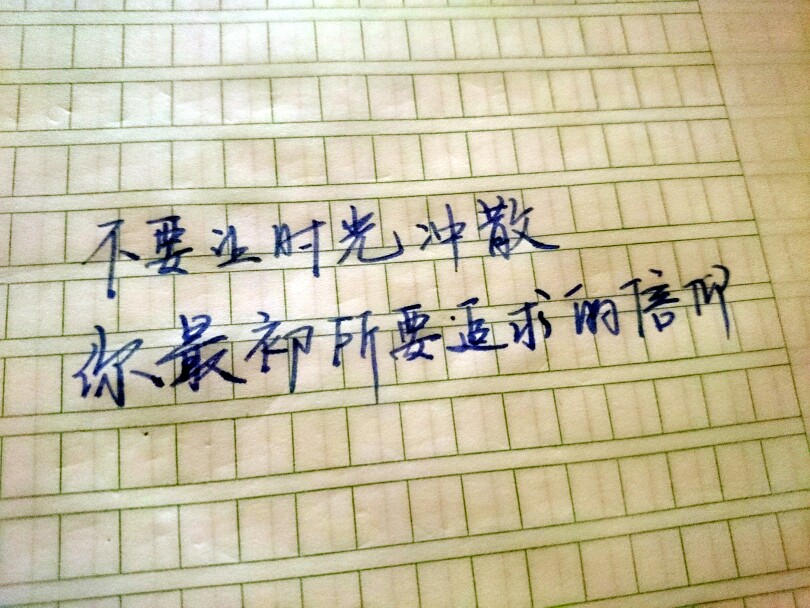 不要让时光冲散
你最初所要追求的信仰